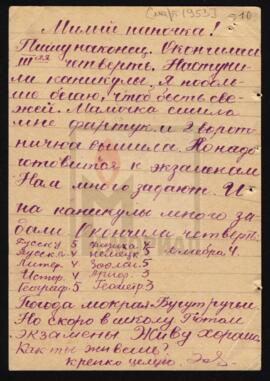 [март 1953] 210
Милый папочка!
Пишу наконец. Окончилась
III-тья четверть. Наступи
ли каникулы. Я поболь
ше бегаю, чтоб быть све
жей. Мамочка сшила
мне фартук и 2 ворот
ничка вышила. Но надо
готовится к экзаменам
Нам много задают. И
на каникулы много за
дали Окончила четверть.
Русск у 5 физика 4
Русск п 4 немецк 5 алгебра 4.
Литер. 4 Зоолог 5
Истор. 4 Тригор 3
Географ 5 Геометр 3
Погода мокрая. Бегут ручьи.
Но скоро в школу. Потом
экзамены. Живу хорошо.
Как ты живёшь?
крепко целую.